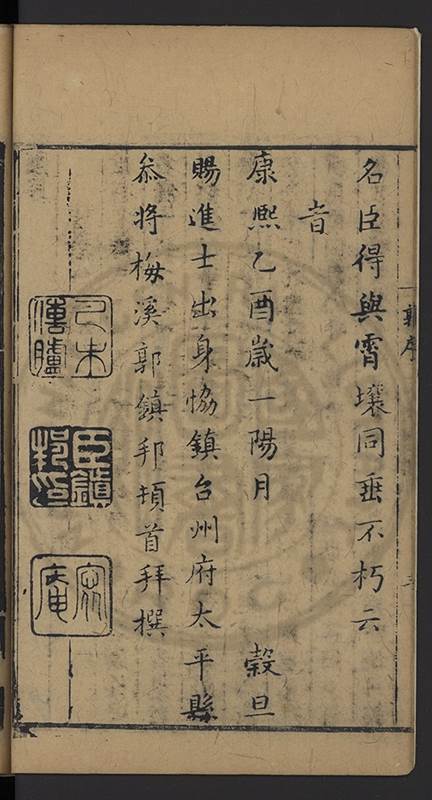 郭序
名臣得與霄壤同垂不朽云
旹
康熙乙酉歲一陽月 穀旦
賜進士出身協鎮台州府太平縣
叅將梅溪郭鎮邦頓首拜撰
己未傳臚
臣鎮邦印